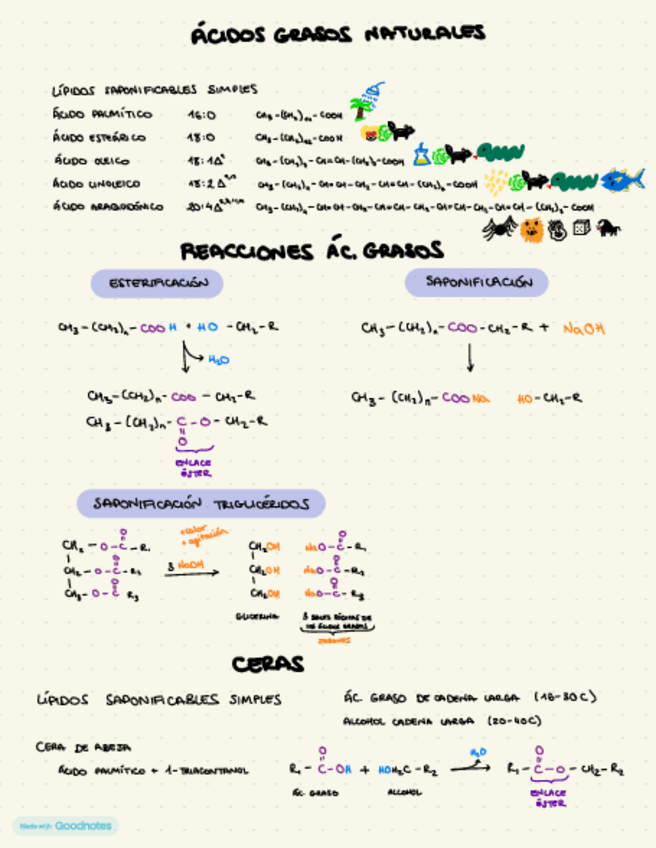 ÁCIDOS GRASOS NATURALES
LÍPIDOS SAPONIFICABLES SIMPLES
ÁCIDO PALMÍTICO 16:0 CH₃-(CH₂)₁₄-COOH
ÁCIDO ESTEÁRICO 18:0 CH₃-(CH₂)₁₆-COOH
ÁCIDO OLEICO 18:1Δ⁹ CH₃-(CH₂)₇-CH=CH-(CH₂)₇-COOH
ÁCIDO LINOLEICO 18:2Δ CH₃-(CH₂)₄-CH=CH-CH₂-CH=CH-(CH₂)₇-COOH
ÁCIDO 20:4Δ CH₃-(CH₂)₄-CH=CH-CH₂-CH=CH-CH₂-CH=CH-CH₂-CH=CH-(CH₂)₃-COOH
REACCIONES ÁC. GRASOS
ESTERIFICACIÓN SAPONIFICACIÓN
CH₃-(CH₂)ₙ-COOH + HO-CH₂-R CH₃-(CH₂)ₙ-COO-CH₂-R + NaOH
H₂O
CH₃-(CH₂)ₙ-COO-CH₂-R CH₃-(CH₂)ₙ-COONa HO-CH₂-R
CH₃-(CH₂)ₙ-C-O-CH₂-R
O
ENLACE
ÉSTER
SAPONIFICACIÓN TRIGLICÉRIDOS
O +calor O
+agitación
CH₂-O-C-R₁ CH₂OH NaO-C-R₁
O 3 NaOH O
CH₂-O-C-R₂ CH₂OH NaO-C-R₂
O O
CH₂-O-C R₃ CH₂OH NaO-C-R₃
GLICERINA 3 SALES SÓDICAS DE
LOS ÁCIDOS GRASOS
JABONES
CERAS
LÍPIDOS SAPONIFICABLES SIMPLES ÁC. GRASO DE CADENA LARGA (18-30C)
ALCOHOL CADENA LARGA (20-40C)
CERA DE ABEJA
ÁCIDO PALMÍTICO + 1-TRIACONTANOL
O H₂O O
R₁-C-OH + HOH₂C-R₂ R₁-C-O-CH₂-R₂
ÁC. GRASO ALCOHOL ENLACE
ÉSTER
Made with Goodnotes